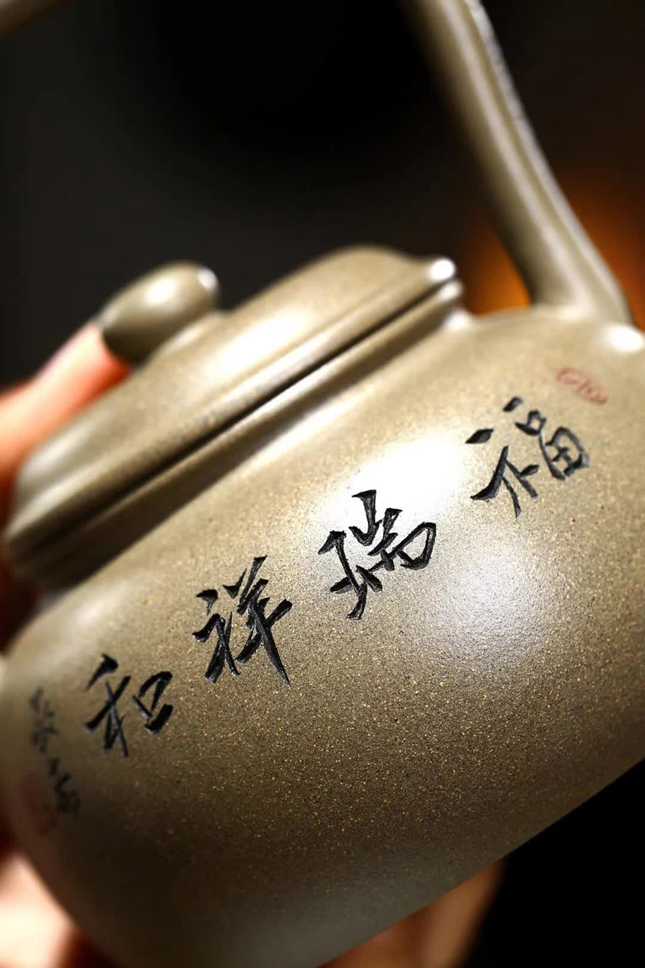 福瑞祥和